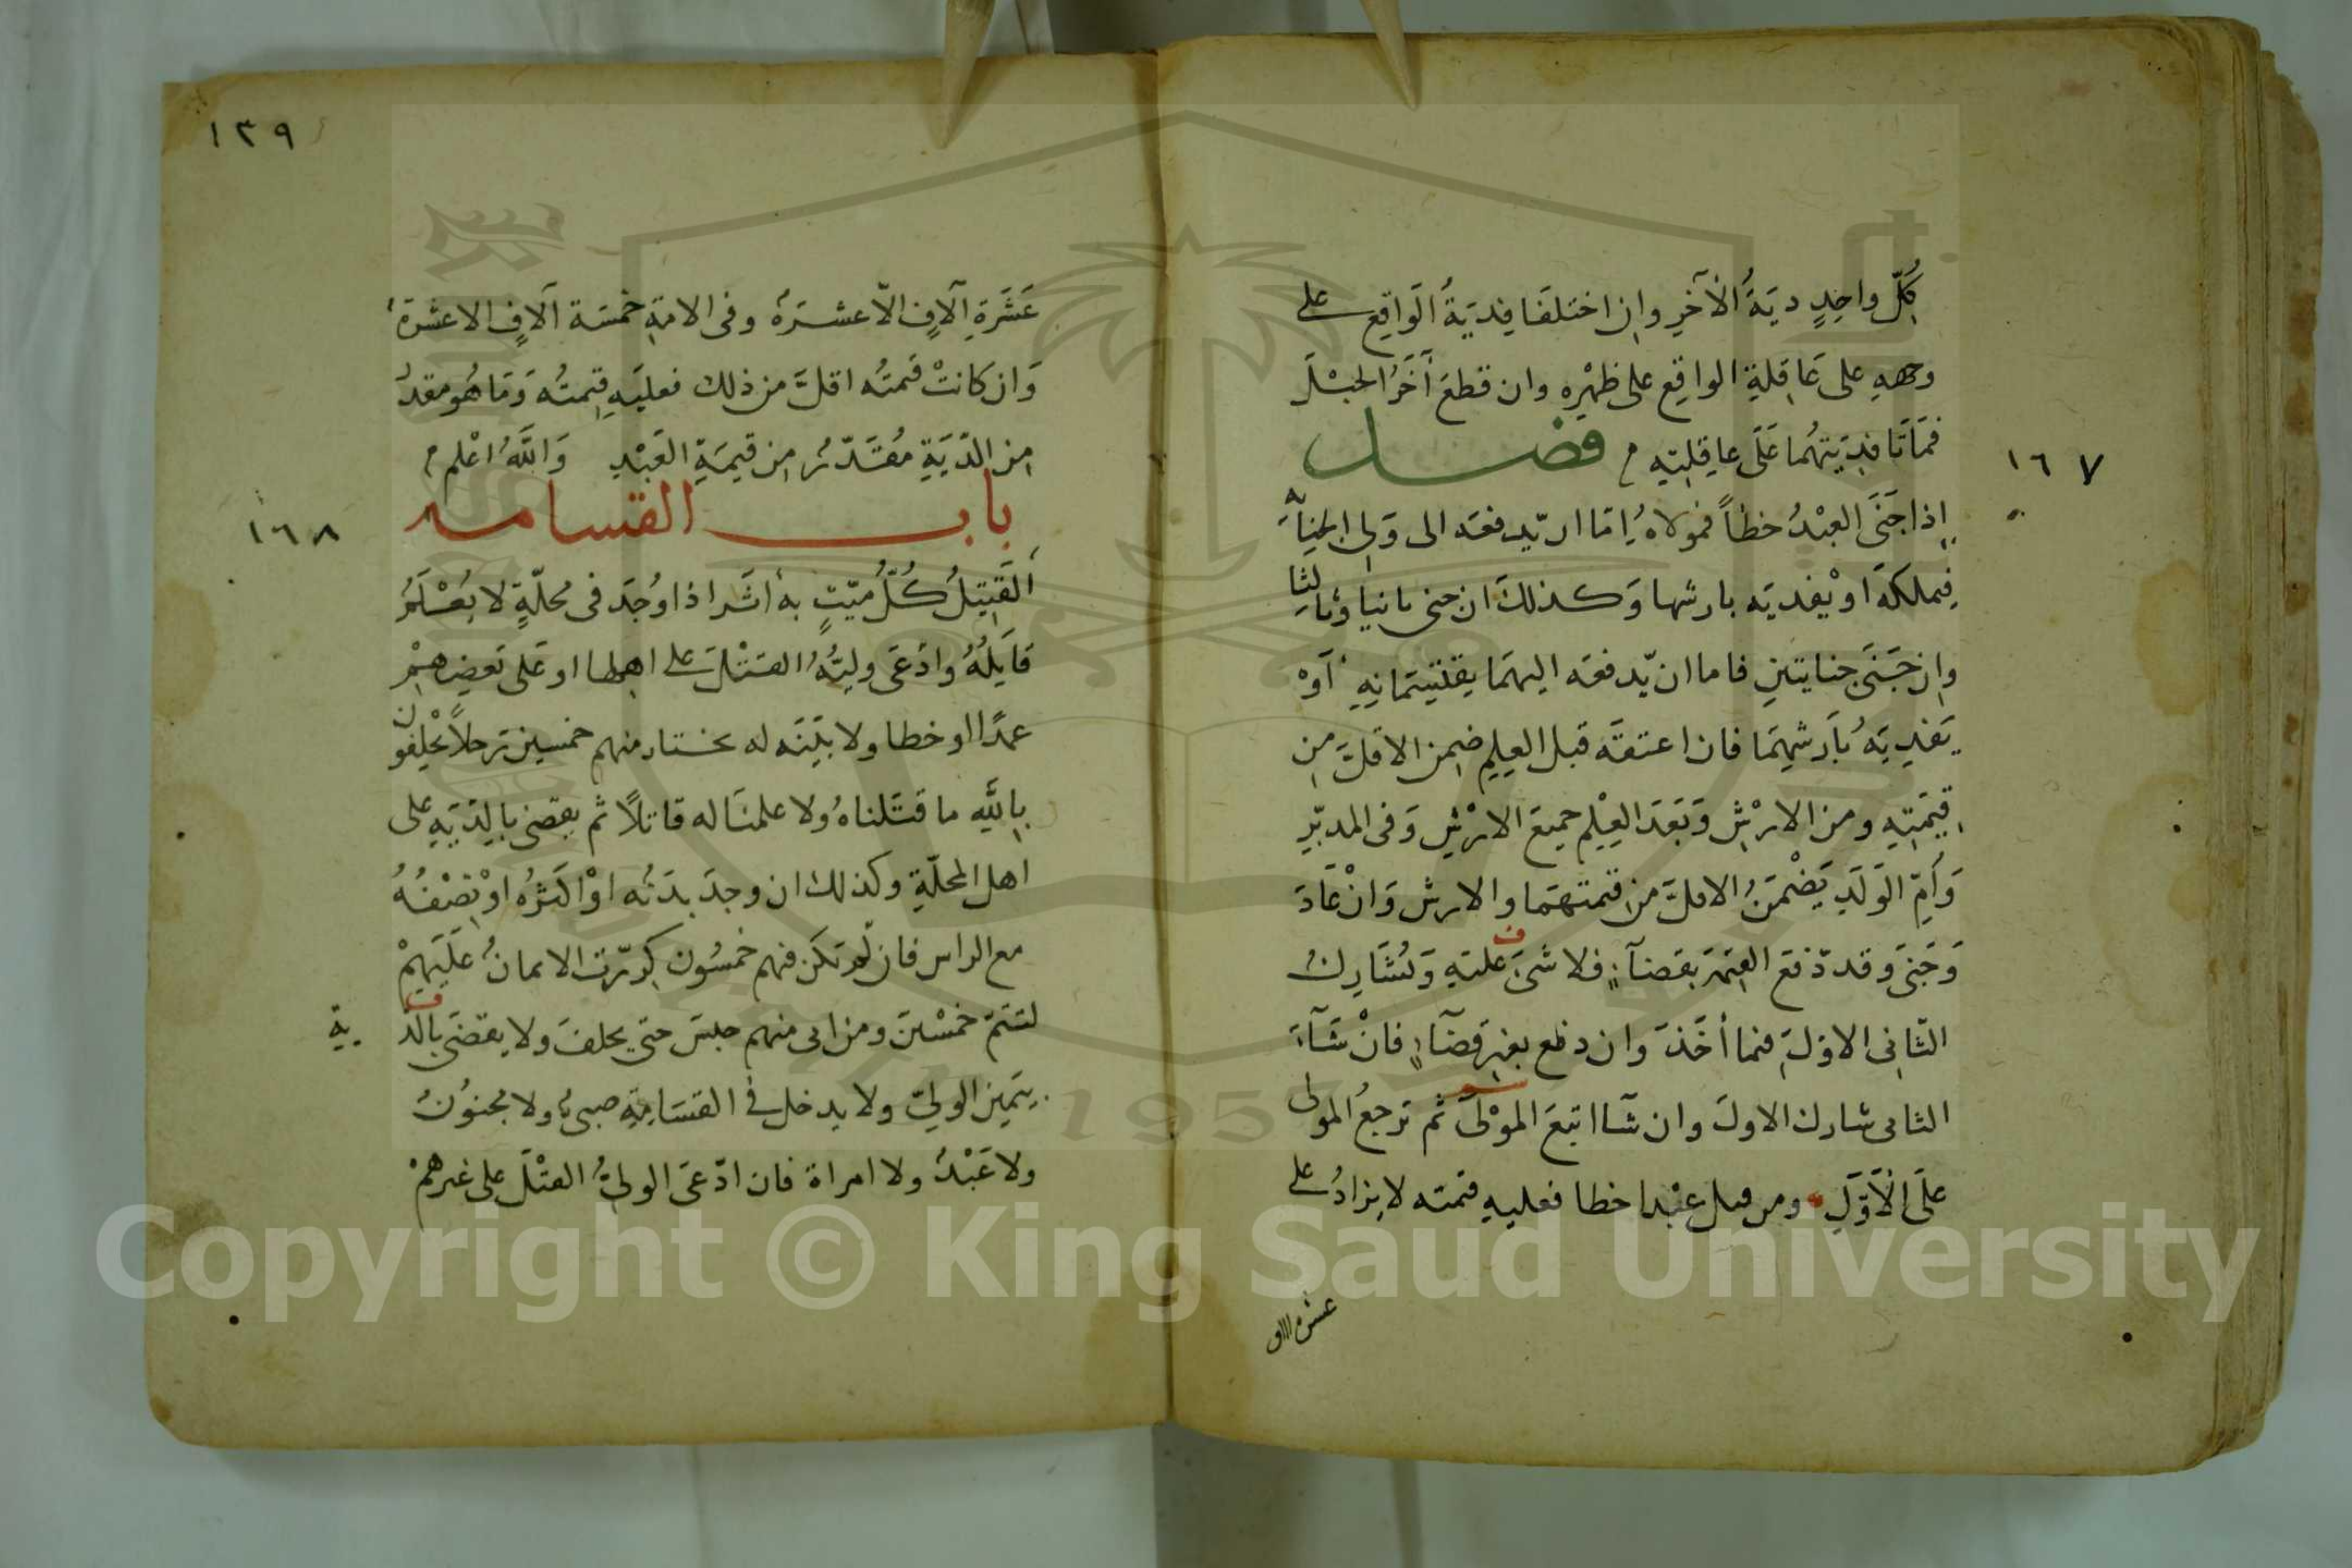 كُلِّ واحِدٍ ديَةُ الْآخَرِ وان اختلفَا فِديَةُ الوَاقِع على
وجههِ على عَاقِلةِ الواقِعِ على ظَهْرِه وان قطعَ آخَرُ الحَبْلَ
فمَاتَا فدِيَتهُما عَلَى عاقِلتِه م فصل
١٦٧
اِذا جَنَى العَبْدُ خطأً فمولاهُ اِمّا ان يّدفعَه الى وَلِى الجِنايَةِ
فيملكهُ اوْ يفديَه بارشها وَكذلكَ ان جنى ثانيا وثالثا
وان جَنَى جنايتينِ فاما ان يّدفعَه اليهمَا يقتسِمَانِهِ اَوْ
يَفدِيَهُ بأَرشِهِمَا فان اعتقَه قبل العِلمِ ضمِن الاقلَّ مِن
قِيمَتِهِ ومن الارْشِ وَبَعدَ العِلْمِ جميعَ الارْشِ وَفى المدبّرِ
وَاُمِّ الوَلَدِ يَضْمَنُ الاقلَّ من قيمتهمَا والارش وَانْ عَادَ
وَجَنى وَقد دّفعَ القِيمَةَ بقضآءٍ فلا شىَٔ عليهِ وَيُشَارِكُ
الثّانِى الاوّلَ فيما أخَذَ وان دفع بغيرِ قضآءٍ فانْ شَآءَ
الثانى شارك الاولَ وان شآ اتبعَ الموْلَى ثم يَرجعُ المولى
علَى الْاَوّلِ ومن قتل عبْدا خطا فعليهِ قيمته لا يزادُ على
عشرة الاف
١٣٩
عَشَرَةِ آلافٍ الّا عشرَةً وفى الامَةِ خمسَة آلافٍ الا عشرَةً
وَان كانتْ قيمتُه اقلَّ من ذلك فعليَهِ قِيمتُه وَمَا هُو مقدرٌ
مِن الدّيَةِ مُقَدّرٌ من قيمَةِ العَبْدِ وَاللّهُ اعْلم م
باب القسامه
١٦٨
اَلقَتِيلُ كُلُّ مَيّتٍ به أثَر اذا وُجدَ فى محلّةٍ لا يُعْلَمُ
قَاتِلُهُ وادّعَى وليُّهُ القتْلَ على اهلها او عَلى بَعضِهِمْ
عمدًا او خطا ولا بَيّنَه له يختار منهم خمسين رَجلاً يَحْلِفُون
بِاللّهِ ما قتَلناهُ ولا علمنَا له قاتلاً ثم يقضى بالدّيَةِ على
اهل المحلّةِ وكذلك ان وجدَ بدَنُه اوْ اكثَرُه اوْ نِصْفُهُ
مع الراس فان لّم يَكَن فيهم خمسُون كِررّت الايمانُ عَلَيهِمْ
لتتمّ خمْسينَ ومن ابى منهم حبِسَ حتى يحلفَ ولا يقضَى بالد
ية
بيَمِين الولىّ ولا يدخل فى القسَامَةِ صبىٌّ ولا مجنوُنٌ
ولا عَبْدٌ ولا امراة فان ادّعَى الولىُّ القتْلَ على غيرهمْ
Copyright © King Saud University
195